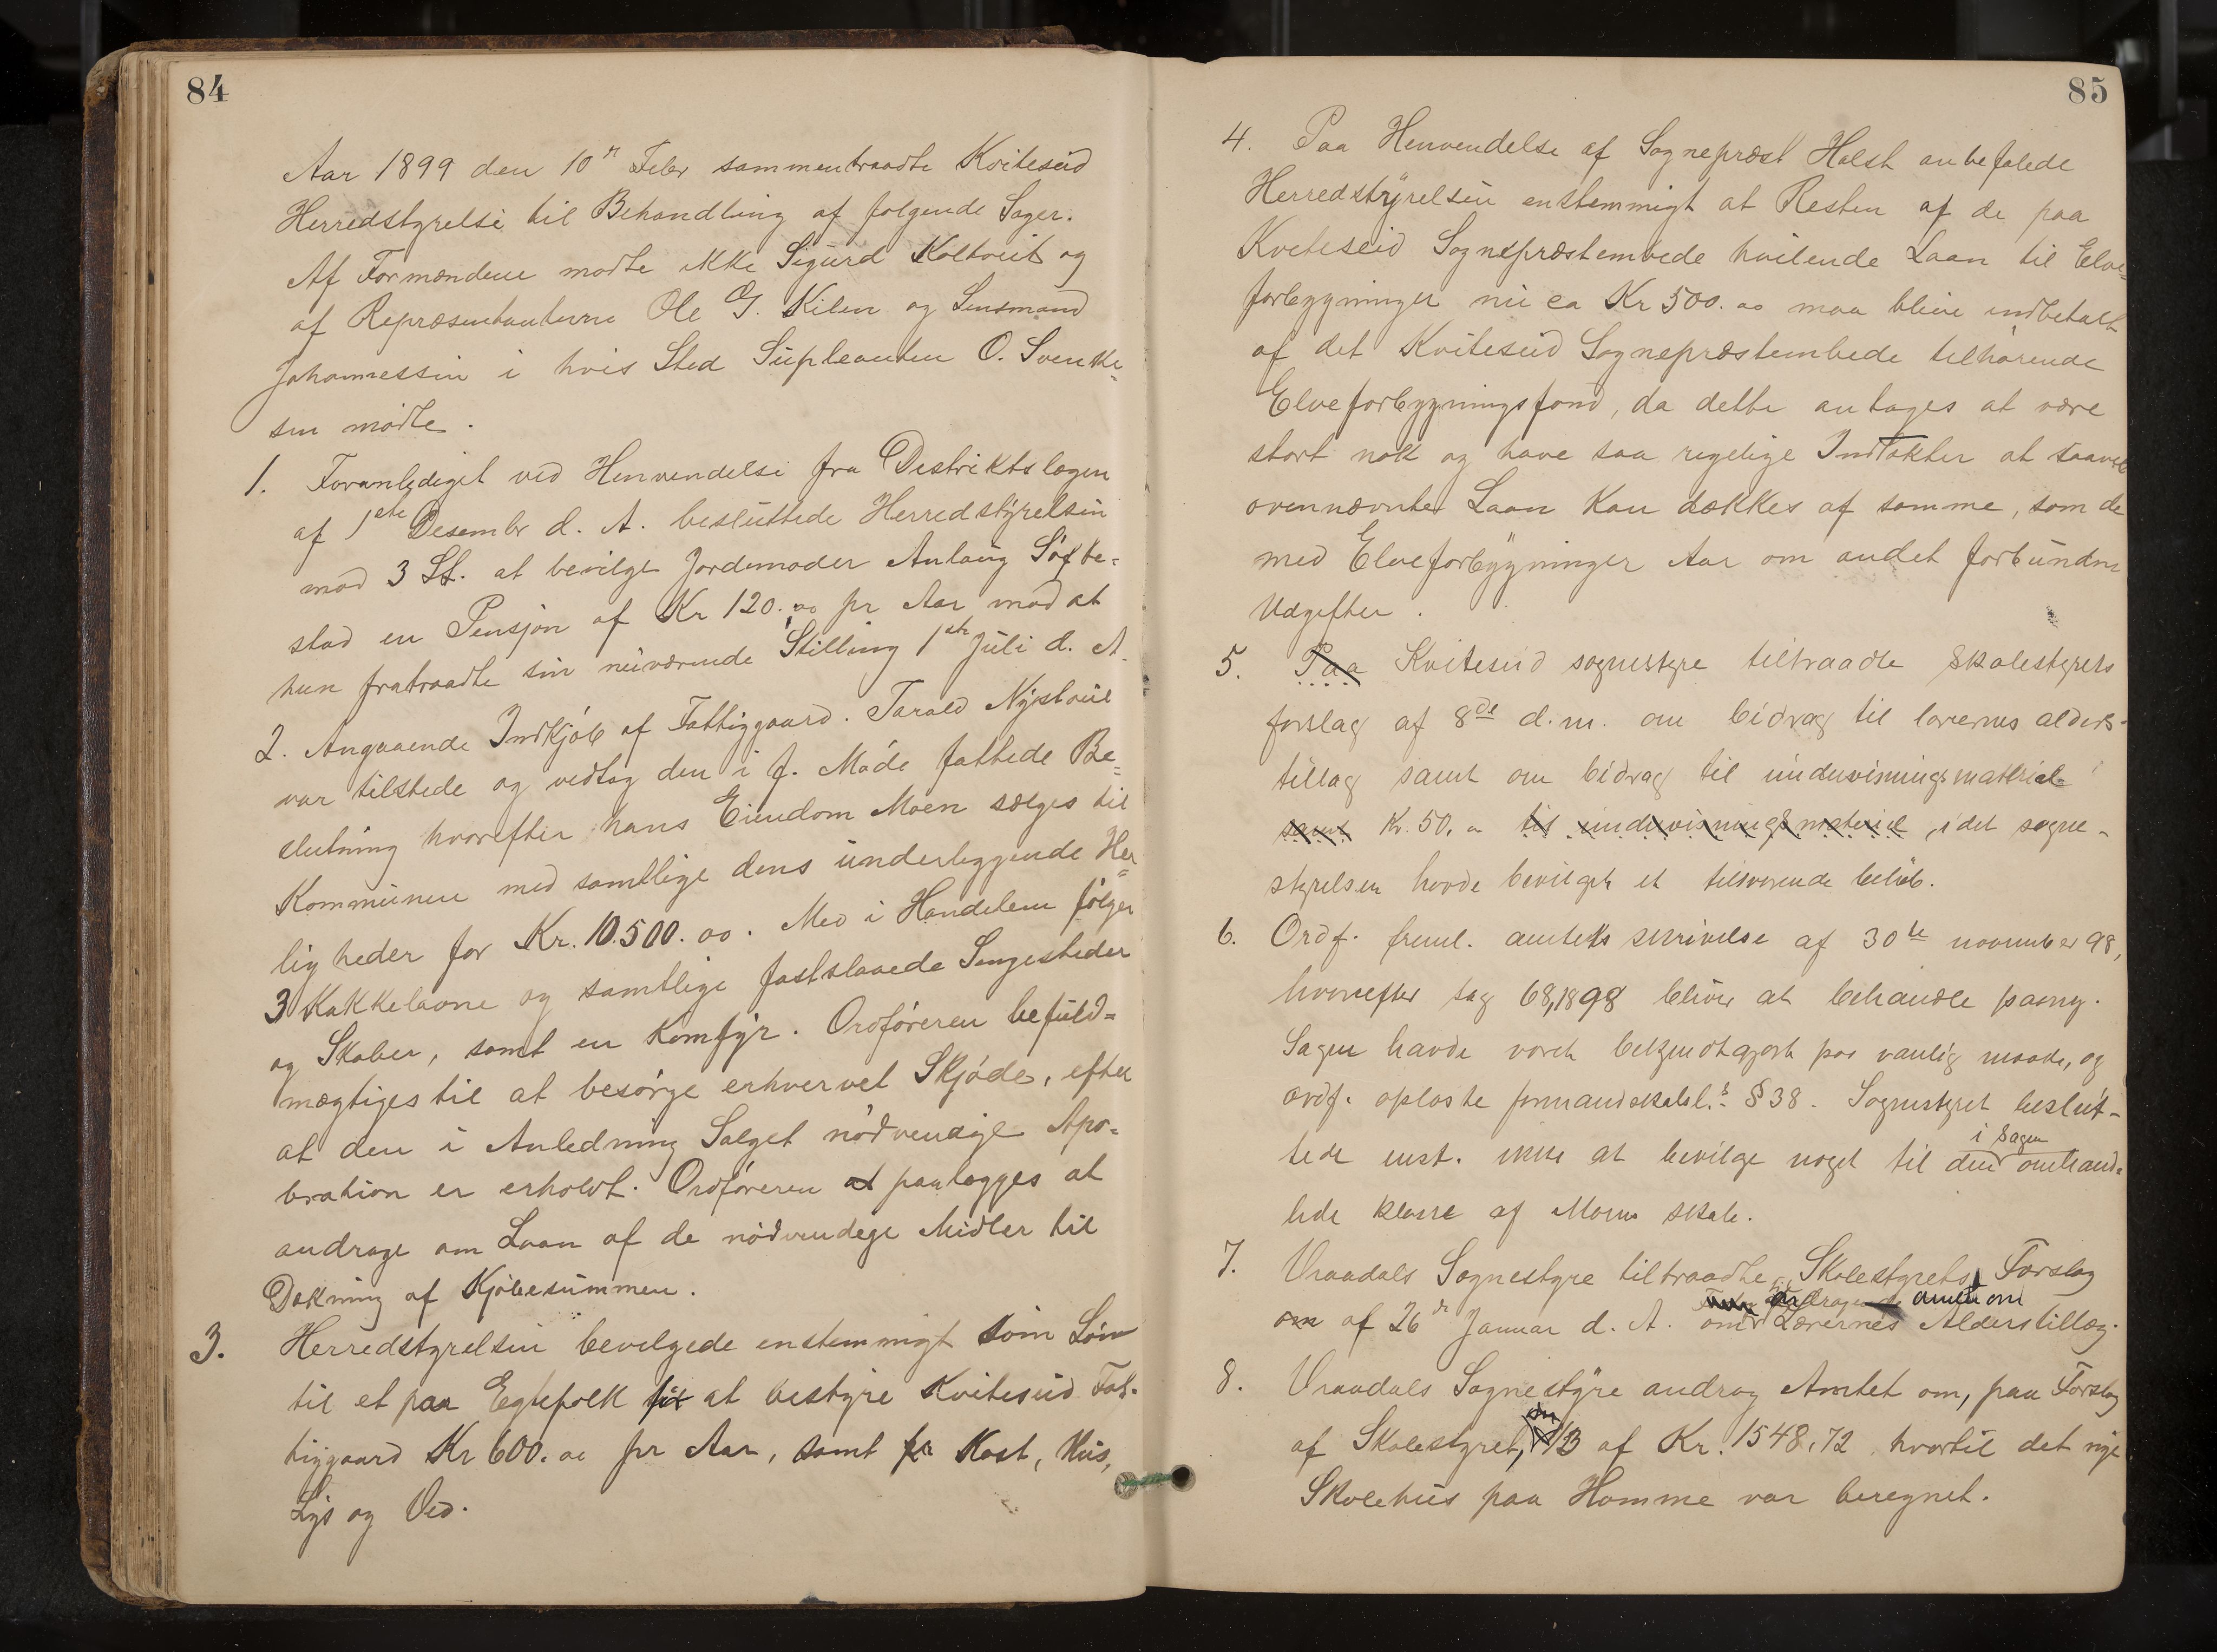 84
Aar 1899 den 10de Febr sammentraadte Kviteseid
Herredstyrelse til Behandling af følgende Sager.
Af Formændene mødte ikke Sigurd Koltveit og
af Repræsentanterne Ole G. Kilen og Lensmand
Johannessen i hvis Sted Supleanten O. Svenke-
sen mødte.
1. Foranlediget ved Henvendelse fra Distriktslægen
af 1ste Desembr d. A. besluttede Herredstyrelsen
mod 3 St. at bevilge Jordemoder Anlaug Søfte-
stad en Pensjon af Kr 120.00 pr Aar mod at
hun fratraadte sin nuværende Stilling 1ste Juli d. A.
2. Angaaende Indkjøb af Fattiggaard. Tarald Nystveit
var tilstede og vedtog den i f. Møde fattede Be=
slutning hvorefter hans Eiendom Moen sælges til
Kommunen med samtlige dens underliggende Her=
ligheder for Kr. 10.500.00. Med i Handelen følger
3 Kakkelovne og samtlige fastslaaede Sengesteder
og Skaber, samt en Komfyr. Ordføreren befuld=
mægtiges til at besørge erhvervet Skjøde, efter
at den i Anledning Salget nødvendige Apro=
bration er erholdt. Ordføreren at paalægges at
andrage om Laan af de nødvendige Midler til
Dækning af Kjøbesummen.
3. Herredstyrelsen bevilgede enstemmigt som Løn
til et par Egtefolk for at bestyre Kviteseid Fat-
tiggaard Kr 600.00 pr Aar, samt fri Kost, Hus,
Lys og Ved.
85
4. Paa Henvendelse af Sognepræst Holst anbefalede
Herredstyrelsen enstemmigt at Resten af de paa
Kviteseid Sognepræstembede hvilende Laan til Elve=
forbygninger nu ca Kr 500.00 maa blive indbetalt
af det Kviteseid Sognepræstembede tilhørende
Elveforbygningsfond, da dette antages at være
stort nok og have saa rigelige Indtækter at saavel
ovennævnte Laan kan dækkes af samme, som de
med Elveforbygninger Aar om andet forbundne
Udgifter.
5. Paa Kviteseid sognestyre tiltraadte skolestyrets
forslag af 8de d.m. om bidrag til lærernes alders-
tillæg samt om bidrag til undervisningsmateriel
samt Kr. 50.00 til undervisningsmateriel, idet sogne-
styrelsen havde bevilget et tilsvarende beløb.
6. Ordf. freml. amtets skrivelse af 30te november 98,
hvorefter sag 68,1898 bliver at behandle paany.
Sagen havde været bekjendtgjort paa vanlig maade, og
ordf. oplæste formandskabsl.s § 38. Sognestyret beslut-
i sagen
tede enst. ikke at bevilge noget til den omhand=
lede klasse af Moens skole.
7. Vraadals Sognestyre tiltraadte Skolestyrets Forslag
om af 26de Januar d. A. om Lærernes Alderstillæg.
8. Vraadals Sognestyre androg Amtet om, paa Forslag
af Skolestyret, 1/3 af Kr. 1548,72, hvortil det nye
Skolehus paa Homme var beregnet.